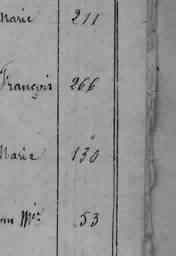 Marie 211
François 266
Marie 130
53